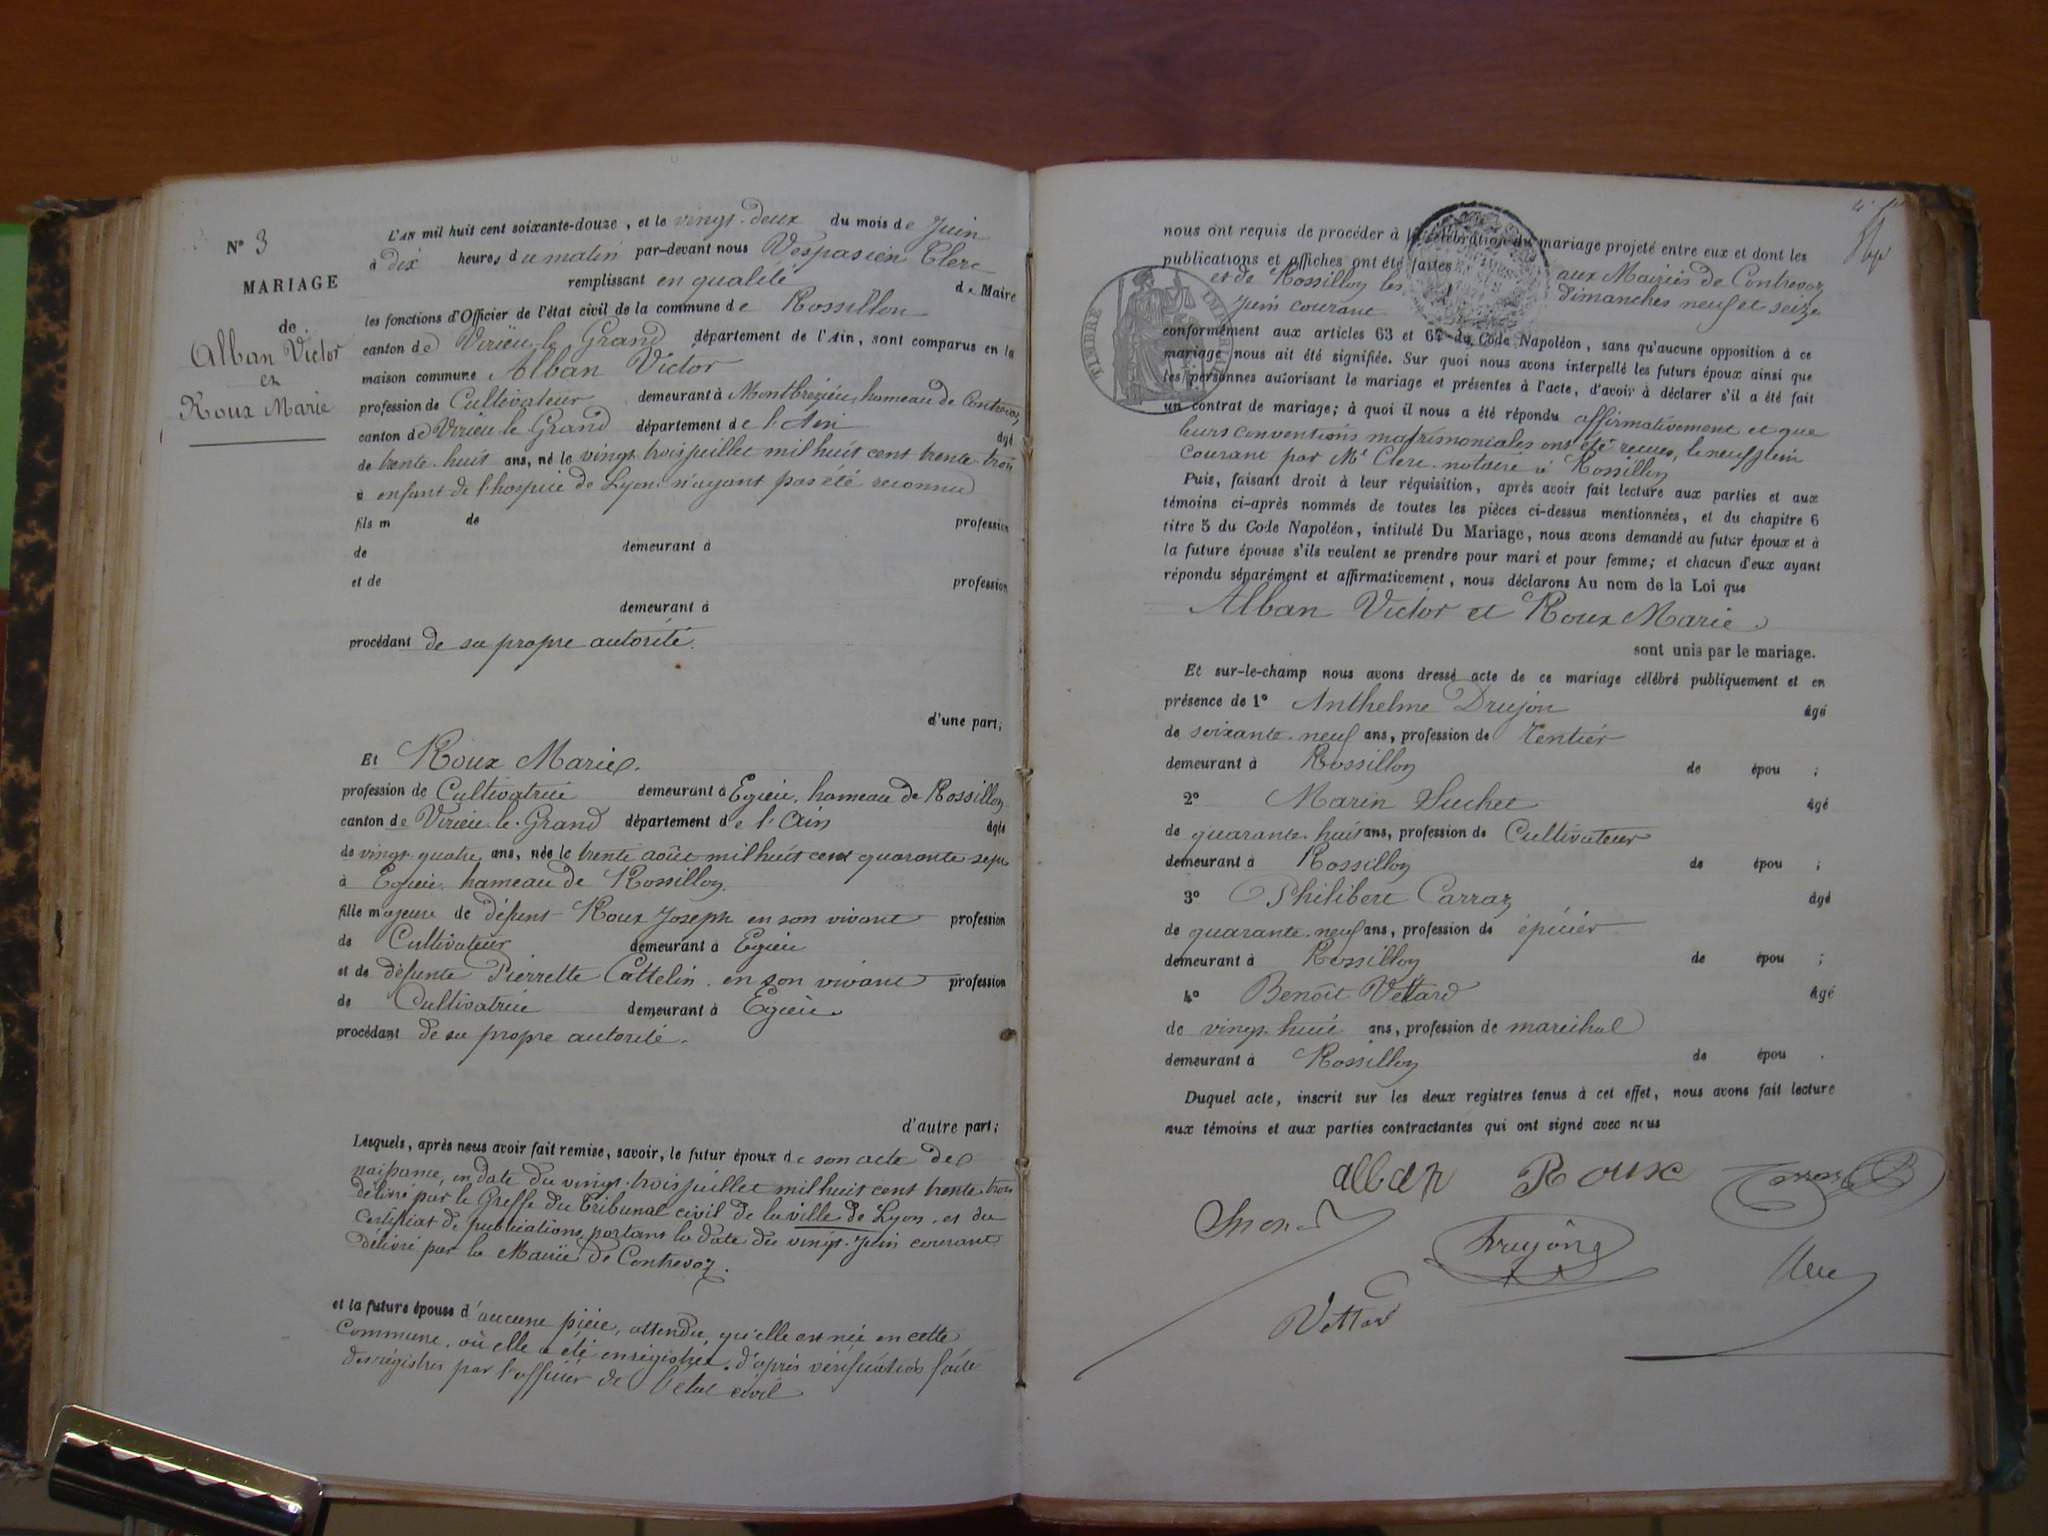 N° 3
MARIAGE
de
Alban Victor
et
Roux Marie
L'AN mil huit cent soixante-douze, et le vingt-deux du mois de Juin
à dix heures du matin par-devant nous Vespasien Clerc
remplissant en qualité de Maire
les fonctions d'Officier de l'état civil de la commune de Rossillon
canton de Virieu-le-Grand département de l'Ain, sont comparus en la
maison commune Alban Victor
profession de Cultivateur demeurant à Montbrezieu, hameau de Contrevoz
canton de Virieu-le-Grand département de l'Ain âgé
de trente-huit ans, né le vingt-trois juillet mil huit cent trente-trois
à enfant de l'hospice de Lyon n'ayant pas été reconnu
fils m de profession
de demeurant à
et de profession
demeurant à
procédant de sa propre autorité.
d'une part;
Et Roux Marie.
profession de Cultivatrice demeurant à Egieu, hameau de Rossillon
canton de Virieu-le-Grand département de l'Ain âgée
de vingt-quatre ans, née le trente août mil huit cent quarante-sept
à Egieu hameau de Rossillon.
fille majeure de défunt Roux Joseph en son vivant profession
de Cultivateur demeurant à Egieu
et de défunte Pierrette Cattelin en son vivant profession
de Cultivatrice demeurant à Egieu
procédant de sa propre autorité.
d'autre part;
Lesquels, après nous avoir fait remise, savoir, le futur époux de son acte de
naissance, en date du vingt-trois juillet mil huit cent trente-trois
délivré par le Greffe du Tribunal civil de la ville de Lyon, et du
certificat de publications portant la date du vingt Juin courant
délivré par la Mairie de Contrevoz.
et la future épouse d'aucune pièce, attendu, qu'elle est née en cette
Commune, où elle a été enrégistrée, d'après vérification faite
des régistres par l'officier de l'état civil
nous ont requis de procéder à la célébration du mariage projeté entre eux et dont les
publications et affiches ont été faites aux Mairies de Contrevoz
et de Rossillon les dimanches neuf et seize
Juin courant
TIMBRE IMPERIAL
conformément aux articles 63 et 64 du Code Napoléon, sans qu'aucune opposition à ce
mariage nous ait été signifiée. Sur quoi nous avons interpellé les futurs époux ainsi que
les personnes autorisant le mariage et présentes à l'acte, d'avoir à déclarer s'il a été fait
un contrat de mariage; à quoi il nous a été répondu affirmativement et que
leurs conventions matrimoniales ont été recues, le neuf Juin
courant par Me Clerc notaire à Rossillon
Puis, faisant droit à leur réquisition, après avoir fait lecture aux parties et aux
témoins ci-après nommés de toutes les pièces ci-dessus mentionnées, et du chapitre 6
titre 5 du Code Napoléon, intitulé Du Mariage, nous avons demandé au futur époux et à
la future épouse s'ils veulent se prendre pour mari et pour femme; et chacun d'eux ayant
répondu séparément et affirmativement, nous déclarons Au nom de la Loi que
Alban Victor et Roux Marie
sont unis par le mariage.
Et sur-le-champ nous avons dressé acte de ce mariage célébré publiquement et en
présence de 1° Anthelme Drujon âgé
de soixante-neuf ans, profession de rentier
demeurant à Rossillon de épou ;
2° Marin Suchet âgé
de quarante-huit ans, profession de Cultivateur
demeurant à Rossillon de épou ;
3° Philibert Carraz âgé
de quarante-neuf ans, profession de épicier
demeurant à Rossillon de épou ;
4° Benoît Vettard âgé
de vingt-huit ans, profession de maréchal
demeurant à Rossillon de épou .
Duquel acte, inscrit sur les deux registres tenus à cet effet, nous avons fait lecture
aux témoins et aux parties contractantes qui ont signé avec nous
alban Roux
Drujong
Clerc
Vettard